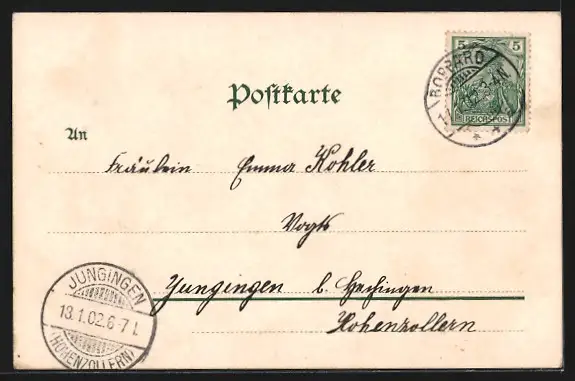 5 5
BOPPARD
REICHSPOST
Postkarte
An
Fräulein Emma Kohler
Vogts
Jungingen b. Hechingen
Hohenzollern
JUNGINGEN
13.1.02.6-7 L
(HOHENZOLLERN)